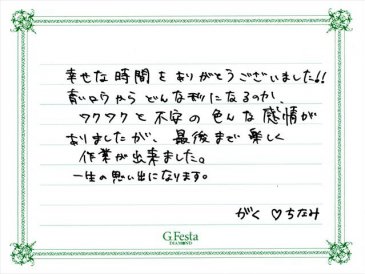 幸せな時間をありがとうございました!!
青いロウからどんな形になるのか、
ワクワクと不安の色んな感情が
ありましたが、最後まで楽しく
作業が出来ました。
一生の思い出になります。
がく ♡ ちなみ
G.Festa
DIAMOND